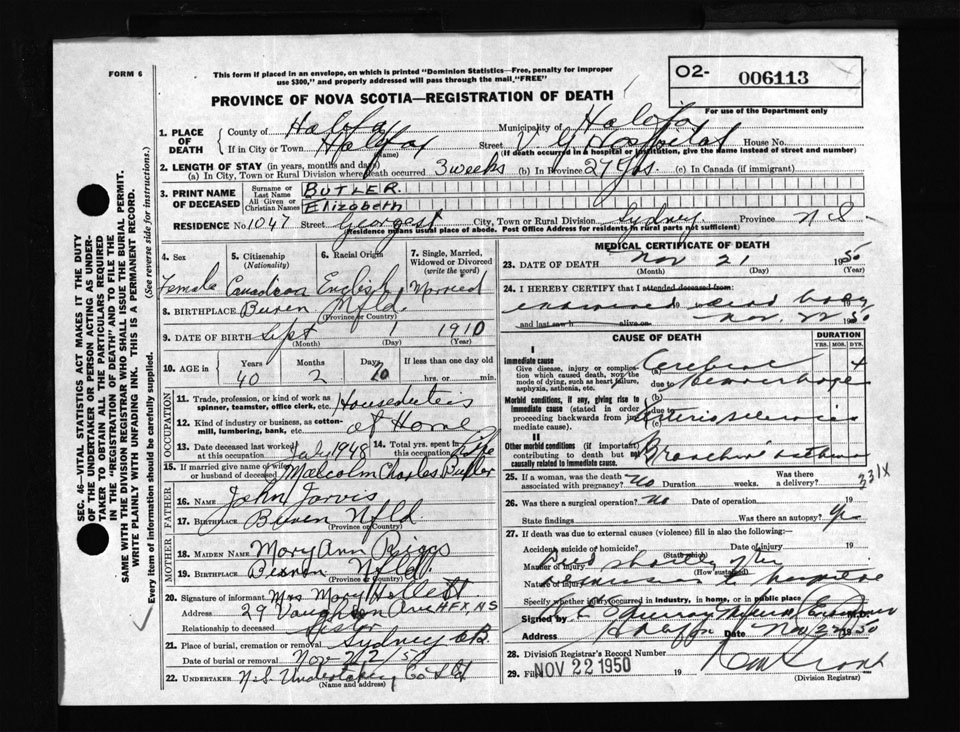 FORM 6
This form if placed in an envelope, on which is printed "Dominion Statistics—Free, penalty for improper
use $300," and properly addressed will pass through the mail, "FREE"
O2- 006113
For use of the Department only
PROVINCE OF NOVA SCOTIA—REGISTRATION OF DEATH
1. PLACE OF DEATH
County of Halifax Municipality of Halifax
If in City or Town Halifax (Name) Street V. G Hospital House No.
(If death occurred in a hospital or institution, give the name instead of street and number)
2. LENGTH OF STAY (in years, months and days)
(a) In City, Town or Rural Division where death occurred 3 weeks (b) In Province 27 yrs. (c) In Canada (if immigrant)
3. PRINT NAME OF DECEASED
Surname or Last Name BUTLER.
All Given or Christian Names Elizabeth
RESIDENCE No. 1047 Street George st City, Town or Rural Division Sydney. Province N S
(Residence means usual place of abode. Post Office Address for residents in rural parts not sufficient)
4. Sex Female
5. Citizenship (Nationality) Canadian
6. Racial Origin English
7. Single, Married, Widowed or Divorced (write the word) Married
8. BIRTHPLACE Buren Nfld. (Province or Country)
9. DATE OF BIRTH Sept 1 1910
(Month) (Day) (Year)
10. AGE in Years Months Days If less than one day old
40 2 10 hrs. or min.
OCCUPATION
11. Trade, profession, or kind of work as spinner, teamster, office clerk, etc. Houseduties
12. Kind of industry or business, as cotton-mill, lumbering, bank, etc. at Home
13. Date deceased last worked at this occupation July 1948 14. Total yrs. spent in this occupation Life
15. If married give name of wife or husband of deceased Malcolm Charles Butler
FATHER
16. Name John Jarvis
17. Birthplace Buren Nfld.
(Province or Country)
MOTHER
18. MAIDEN NAME Mary Ann Riggs
19. BIRTHPLACE Nfld.
(Province or Country)
20. Signature of informant Mrs Mary Hollett
Address 29 Vaughan Ave HFX, N S
Relationship to deceased Sister
21. Place of burial, cremation or removal Sydney C.B.
Date of burial or removal Nov 22/50
22. UNDERTAKER N.S. Undertaking Co Ltd
(Name and address)
MEDICAL CERTIFICATE OF DEATH
23. DATE OF DEATH Nov 21 1950
(Month) (Day) (Year)
24. I HEREBY CERTIFY that I attended deceased from:
examined dead body
and last saw h alive on Nov. 22 1950
CAUSE OF DEATH
DURATION
YRS. MOS. DYS.
I
Immediate cause
Give disease, injury or complication which caused death, not the mode of dying, such as heart failure, asphyxia, asthenia, etc.
(a) Cerebral
due to Hemorrhage
Morbid conditions, if any, giving rise to immediate cause (stated in order proceeding backwards from immediate cause).
(b) Arteriosclerosis
(c)
II
Other morbid conditions (if important) contributing to death but not causally related to immediate cause.
Bronchial asthma
25. If a woman, was the death associated with pregnancy? No Duration weeks. Was there a delivery?
331X
26. Was there a surgical operation? No Date of operation 19
State findings Was there an autopsy? Yes
27. If death was due to external causes (violence) fill in also the following:—
Accident, suicide or homicide? (State which) Date of injury 19
Manner of injury Died shortly after (How sustained)
Nature of injury admission to hospital
Specify whether injury occurred in industry, in home, or in public place
Signed by
Address Halifax Date Nov 22 1950
28. Division Registrar's Record Number
29. Filed NOV 22 1950 19
(Division Registrar)
SEC. 46—VITAL STATISTICS ACT MAKES IT THE DUTY
OF THE UNDERTAKER OR PERSON ACTING AS UNDER-
TAKER TO OBTAIN ALL THE PARTICULARS REQUIRED
IN THE "REGISTRATION OF DEATH" AND TO FILE THE
SAME WITH THE DIVISION REGISTRAR WHO SHALL ISSUE THE BURIAL PERMIT.
WRITE PLAINLY WITH UNFADING INK. THIS IS A PERMANENT RECORD.
Every item of information should be carefully supplied. (See reverse side for instructions.)